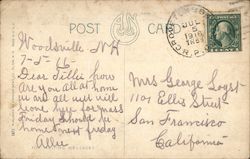 POST CARD
Woodsville N H
7-5-15
Dear Tillie how
are you all at home
we are all well will
leave here for mess
Friday should be
home next friday
Allie
Mrs George Logst
1101 Ellis Street
San Francisco
California
JUL
1915
R.P.O.